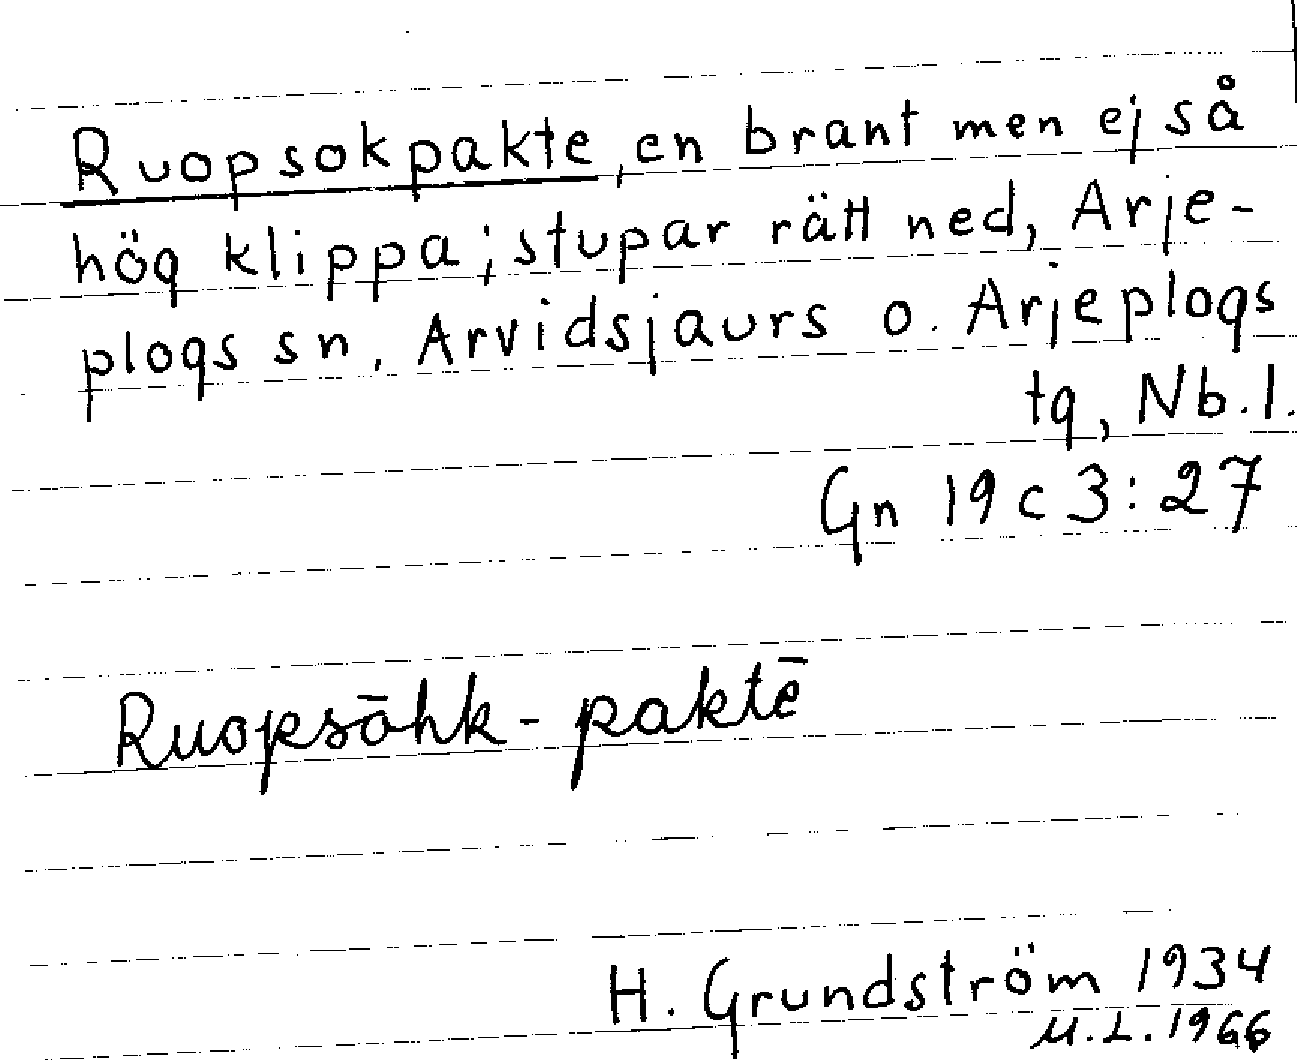 Ruopsokpakte, en brant men ej så
hög klippa; stupar rätt ned, Arje-
plogs sn, Arvidsjaurs o. Arjeplogs
tg, Nb.l.
Gn 19 c 3:27
Ruopsōhk-paktē
H. Grundström 1934
M.L. 1966